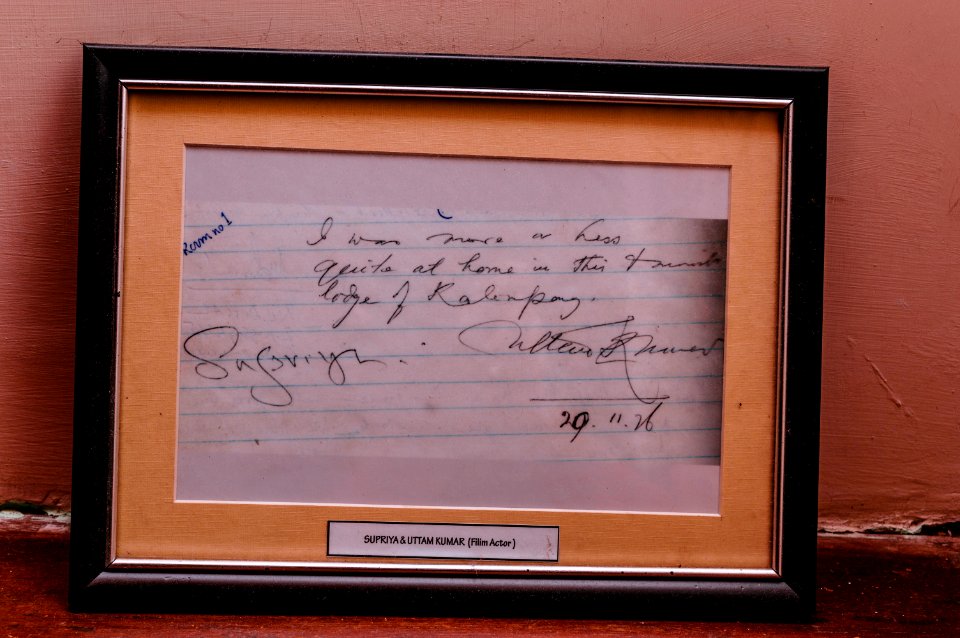 Room no 1
I was more or less
quite at home in this tourist
lodge of Kalimpong.
Supriya. Uttam Kumar
29.11.76
SUPRIYA & UTTAM KUMAR (Filim Actor)